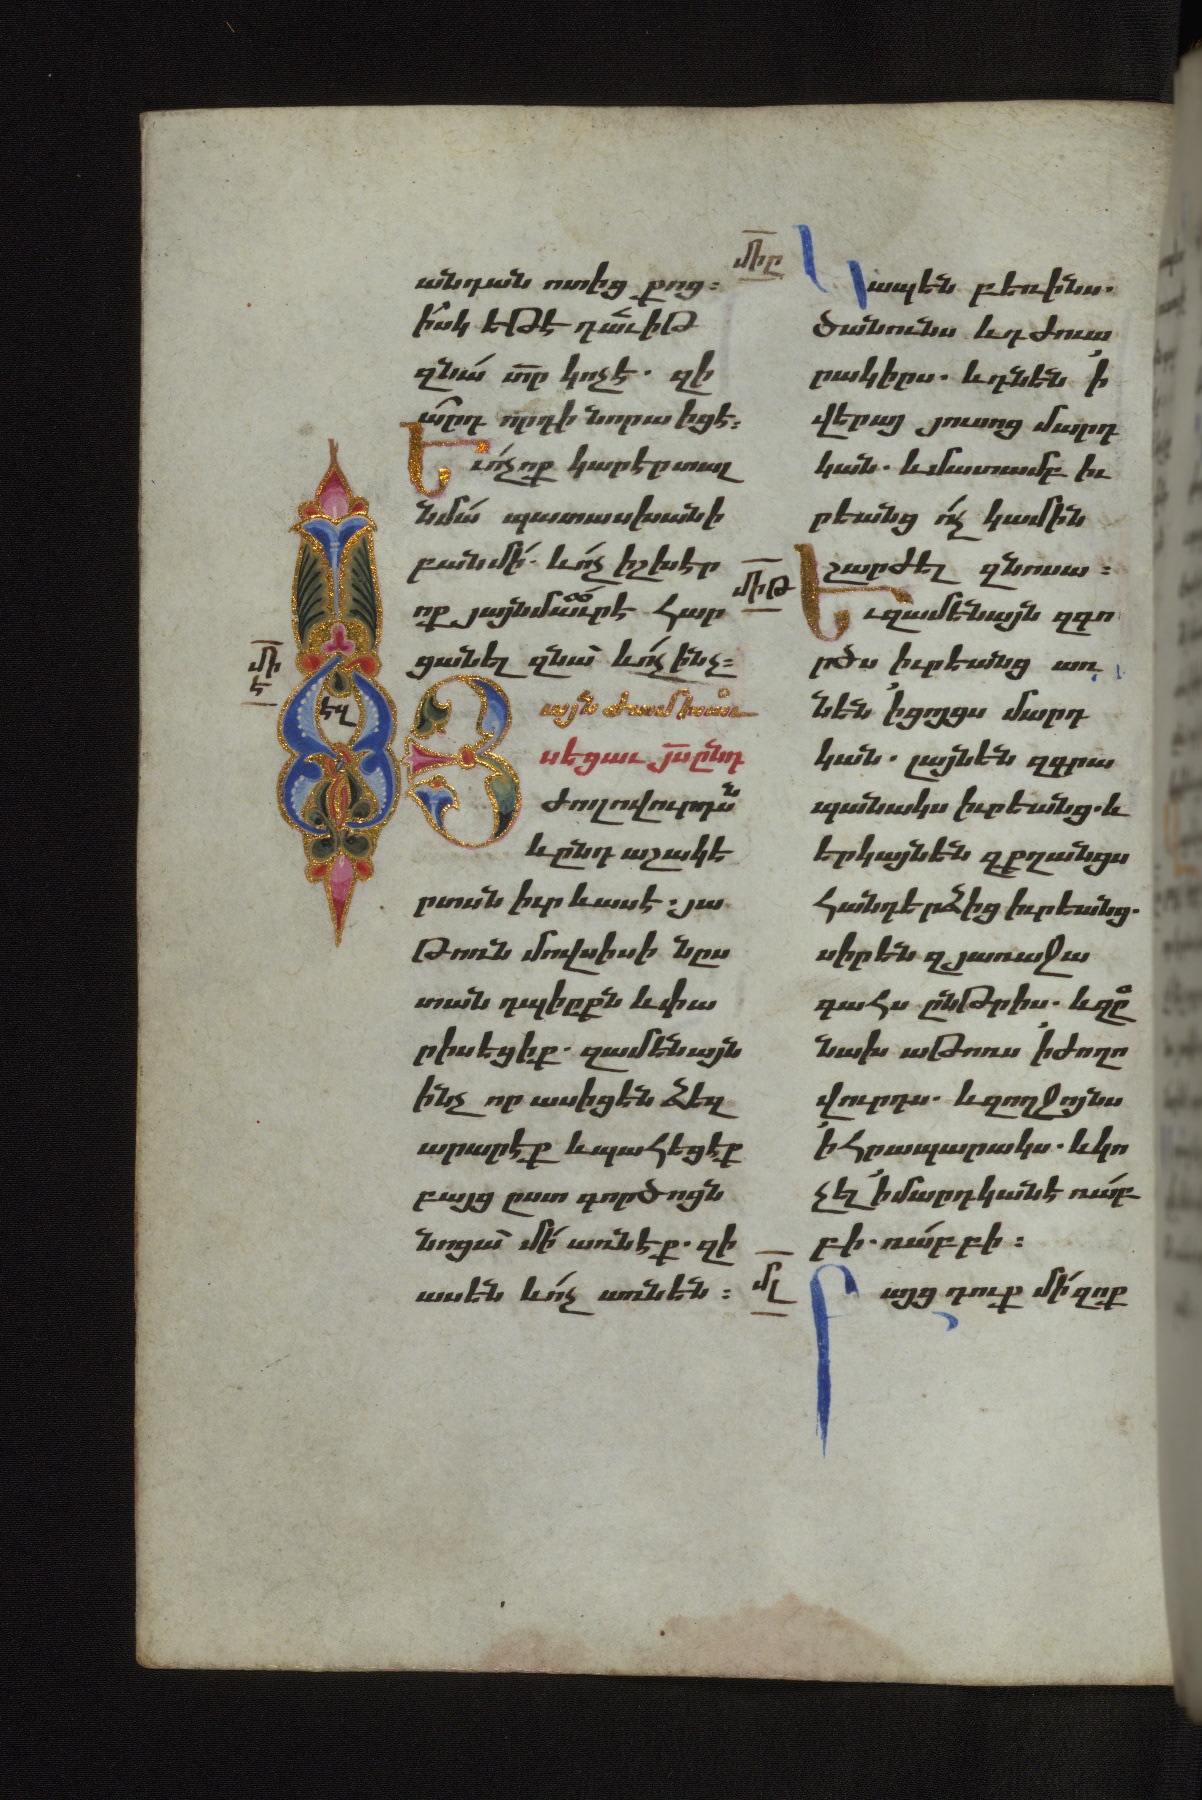 անդան ոտից քոց։
իսկ եթէ դաւիթ
զնա տր կոչէ. զի
արդ որդի նորա իցէ։
Եւ ոչ ոք կարէր տալ
նմա պատասխանի
բան մի. և ոչ իշխէր
ոք յայնմ աւրէ հար
ցանել զնա և ոչ ինչ։
մի
է
էզ
Յայնժամ խաւ
սեցաւ յս ընդ
ժողովուրդսն
և ընդ աշակե
րտսն իւր և ասէ. յա
թոռն մովսիսի նըս
տան դպիրքն և փա
րիսեցիք. զամենայն
ինչ որ ասիցեն ձեզ
արարէք և պահեցէք
բայց ըստ գործոցն
նոցա մի առնէք. զի
ասեն և ոչ առնեն։
միը
Կապեն բեռինս.
ծանունս և դժուա
րակիրս. և դնեն ՚ի
վերայ յուսոց մարդ
կան. և մատամբ իւ
րեանց ոչ կամին
շարժել զնոսա։
միթ
Եւ զամենայն զգո
րծս իւրեանց առ
նեն ՚ի ցոյցս մարդ
կան. լայնեն զգրա
պանակս իւրեանց. և
երկայնեն զքղանցս
հանդերձից իւրեանց.
սիրեն զյառաջա
գահս ընթրիս. և զը
նախ աթոռս ՚ի ժողո
վուրդս. և զողջոյնս
՚ի հրապարակս. և կո
չել ՚ի մարդկանէ ռաբ
բի. ռաբբի։
մլ
Բայց դուք մի զոք